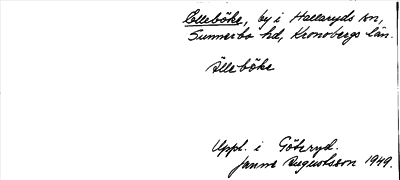 Elleböke, by i Hallaryds sn,
Sunnerbo hd, Kronobergs län.
Älleböke
Uppt. i Göteryd.
Janne Augustsson 1949.